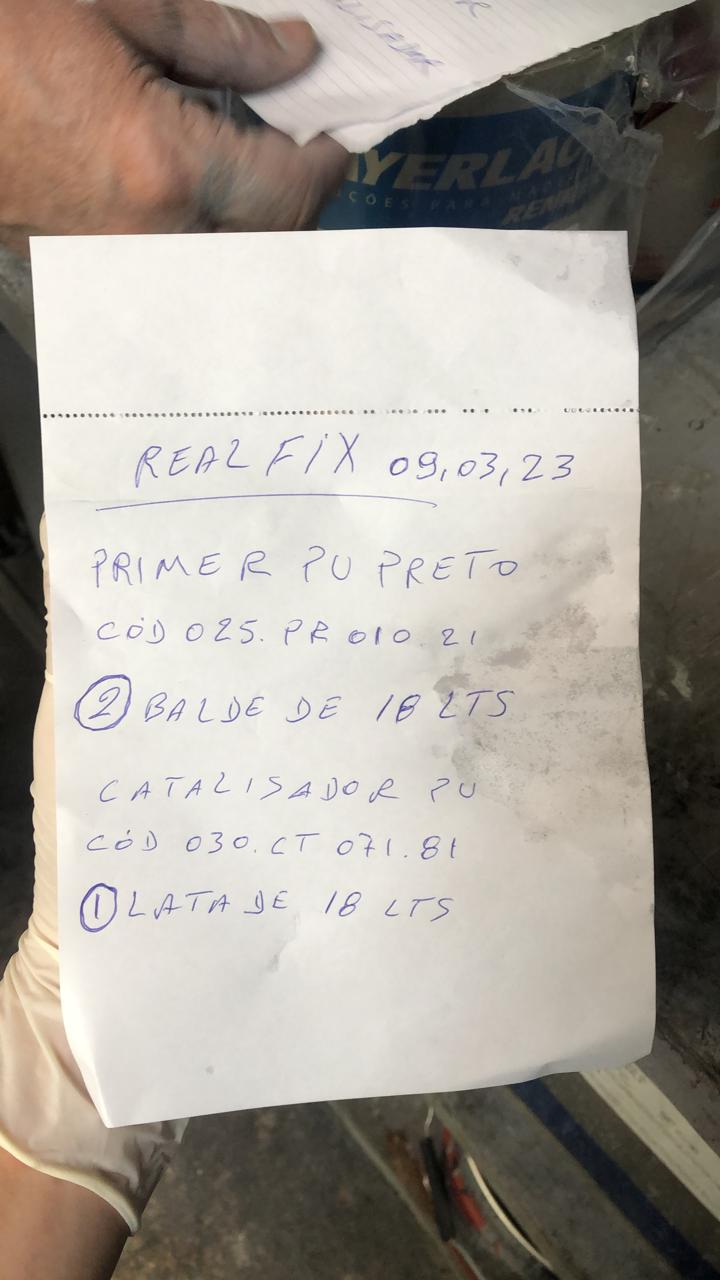 YERLAC
ÇÕES PARA MA
REN
REAL FIX 09,03,23
PRIMER PU PRETO
CÓD 025. PR 010 21
2 BALDE DE 18 LTS
CATALISADOR PU
CÓD 030. CT 071.81
1 LATA DE 18 LTS